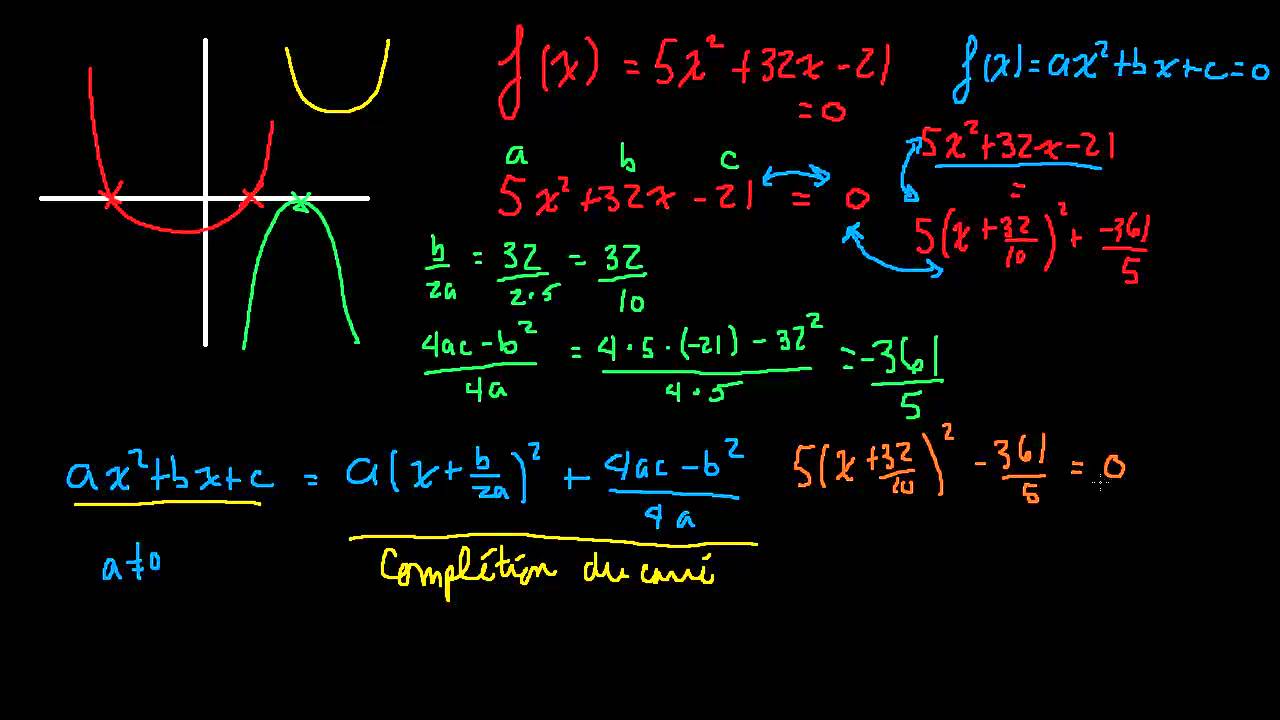 f(x) = 5x² + 32x - 21
= 0
f(x) = ax² + bx + c = 0
a b c
5x² + 32x - 21 = 0
5x² + 32x - 21
=
5(x + 32/10)² + -361/5
b/2a = 32/2·5 = 32/10
4ac - b²/4a = 4·5·(-21) - 32²/4·5 = -361/5
ax² + bx + c = a(x + b/2a)² + 4ac - b²/4a
5(x + 32/10)² - 361/5 = 0
a≠0
Complétion du carré